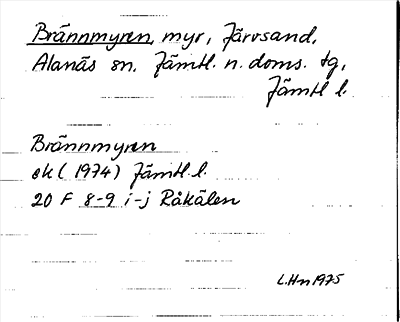 Brännmyren, myr, Järvsand,
Alanäs sn. Jämtl. n. doms. tg,
Jämtl l.
Brännmyren
ek (1974) Jämtl. l.
20 F 8-9 i-j Råkälen
L.Hn 1975